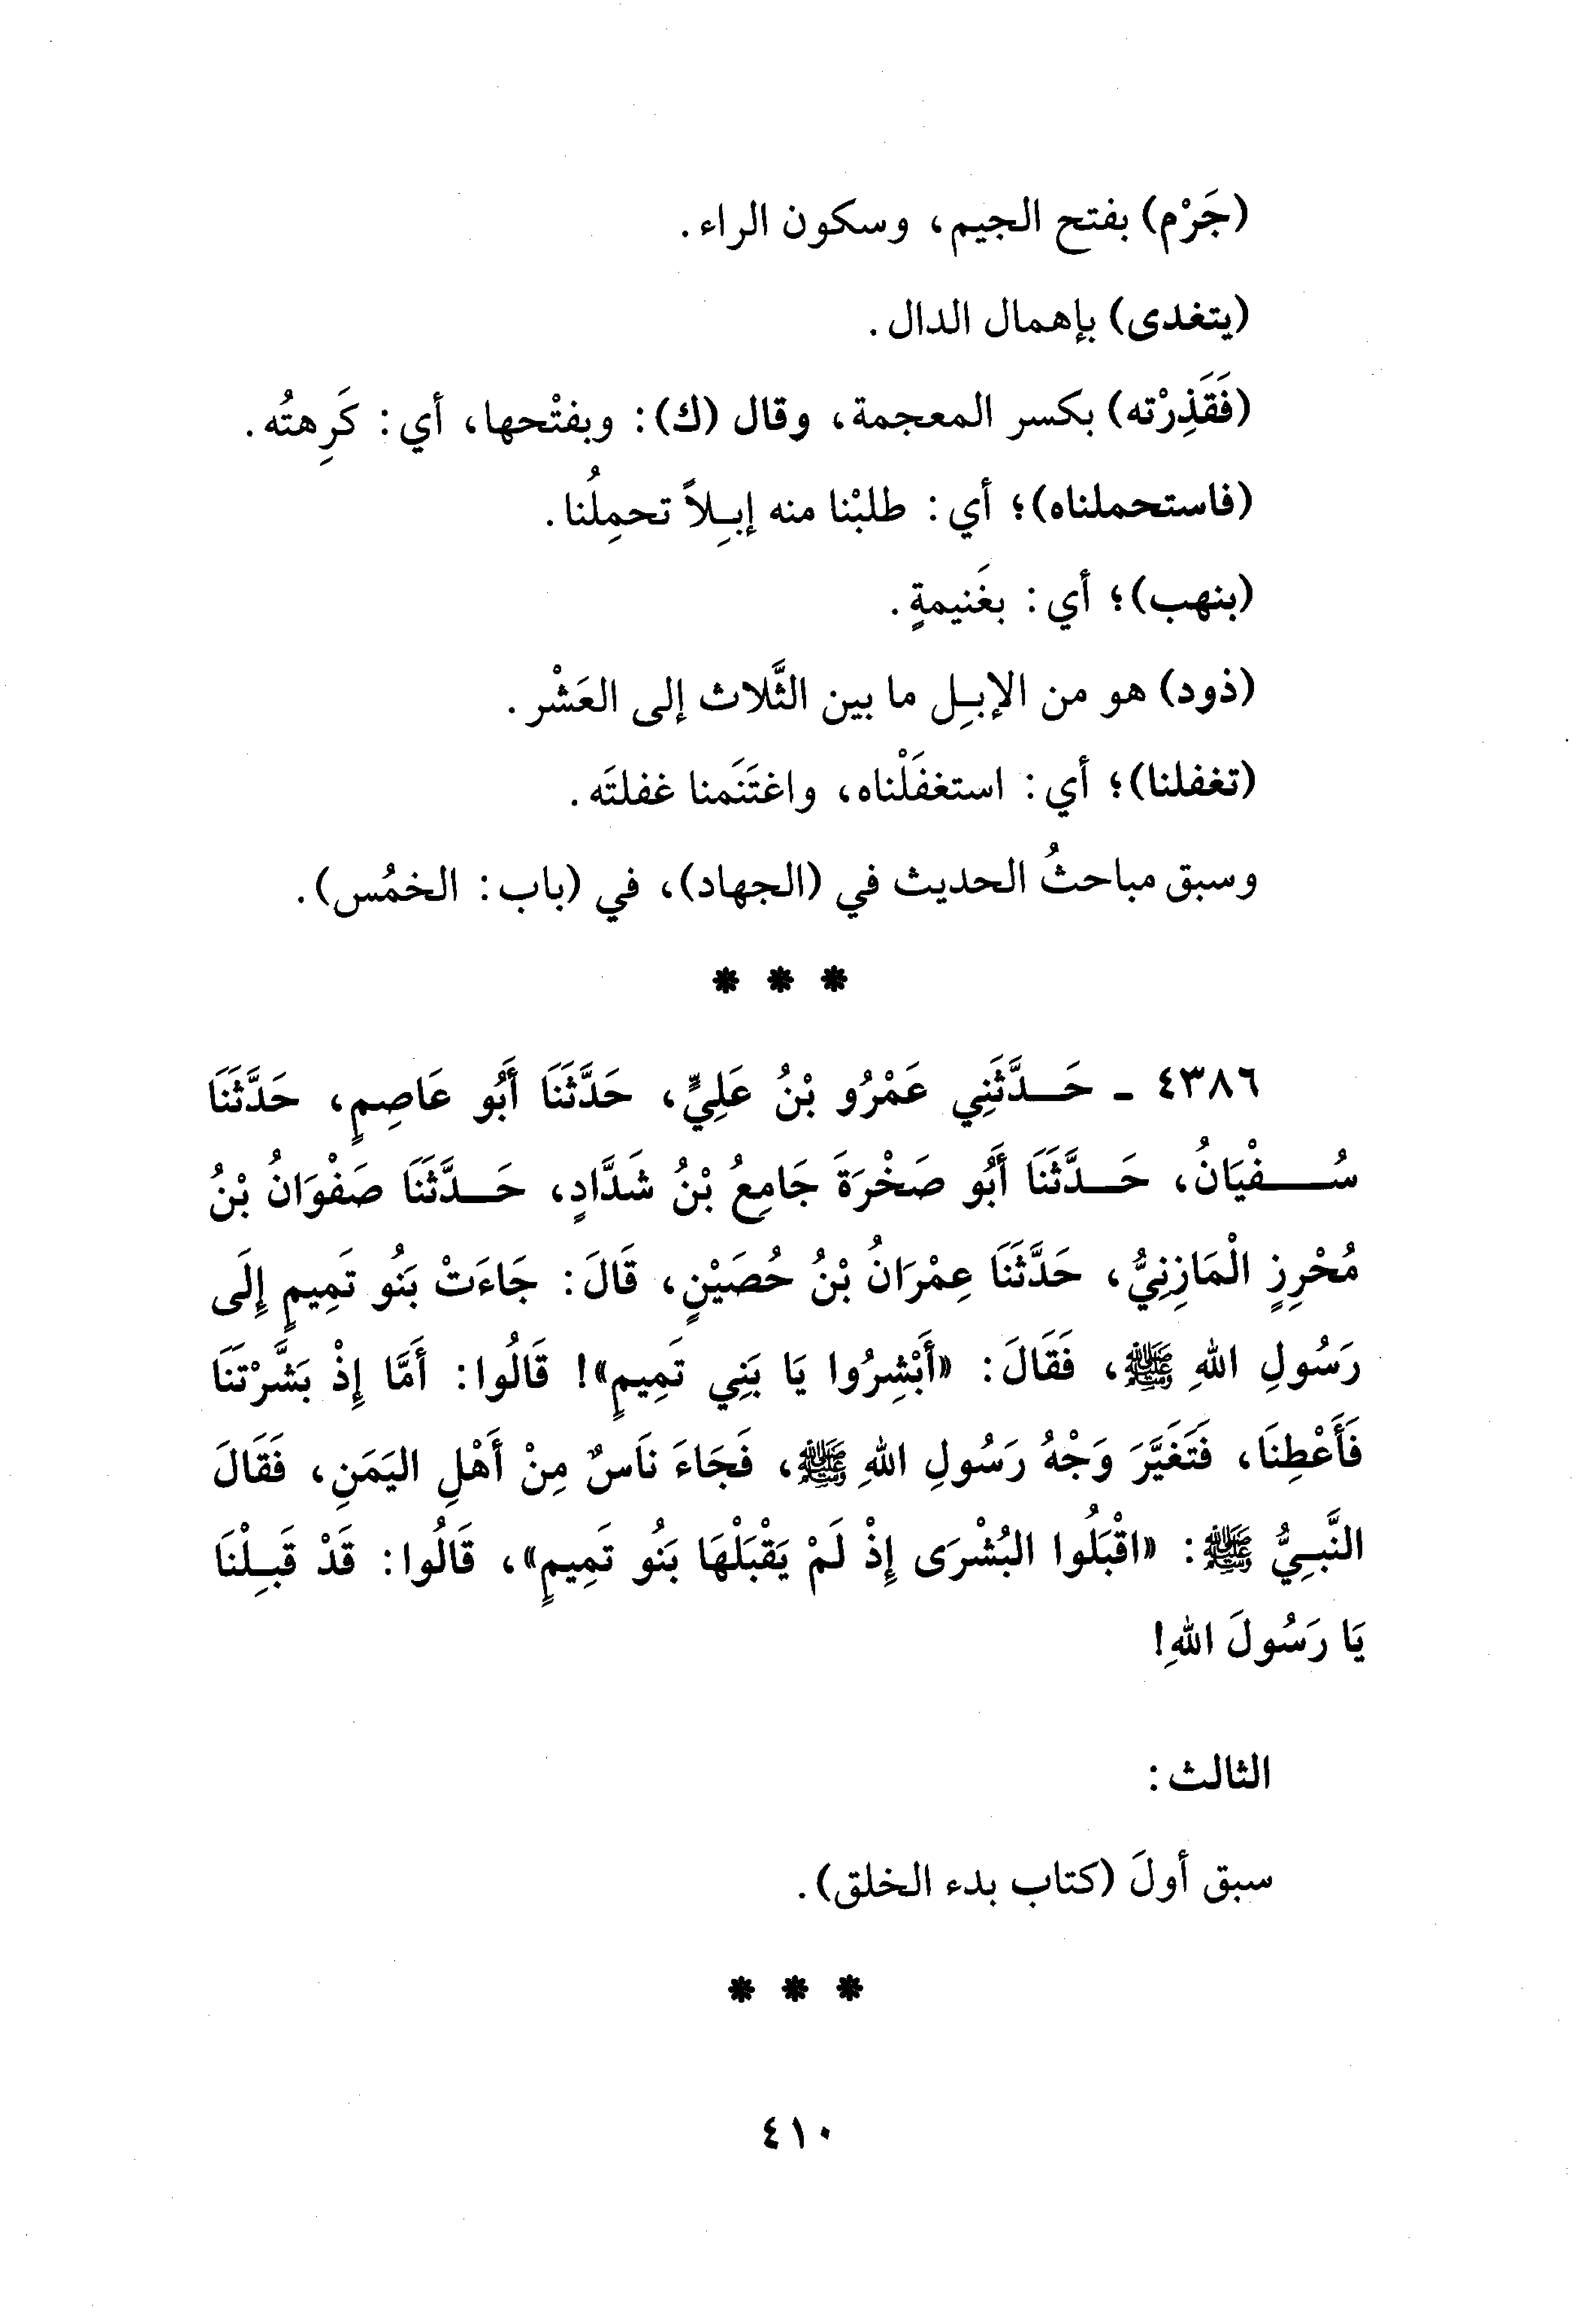 (جَرْم) بفتح الجيم، وسكون الراء.
(يتغدى) بإهمال الدال.
(فَقَذِرْته) بكسر المعجمة، وقال (ك): وبفتْحها، أي: كَرِهتُه.
(فاستحملناه)؛ أي: طلبْنا منه إبِلاً تحمِلُنا.
(بنهب)؛ أي: بغَنيمةٍ.
(ذود) هو من الإبِل ما بين الثَّلاث إلى العَشْر.
(تغفلنا)؛ أي: استغفَلْناه، واغتَنَمنا غفلتَه.
وسبق مباحثُ الحديث في (الجهاد)، في (باب: الخمُس).
* * *
٤٣٨٦ ـ حَدَّثَنِي عَمْرُو بْنُ عَلِيٍّ، حَدَّثَنَا أَبُو عَاصِمٍ، حَدَّثَنَا
سُفْيَانُ، حَدَّثَنَا أَبُو صَخْرَةَ جَامِعُ بْنُ شَدَّادٍ، حَدَّثَنَا صَفْوَانُ بْنُ
مُحْرِزٍ الْمَازِنِيُّ، حَدَّثَنَا عِمْرَانُ بْنُ حُصَيْنٍ، قَالَ: جَاءَتْ بَنُو تَمِيمٍ إِلَى
رَسُولِ اللهِ ﷺ، فَقَالَ: «أَبْشِرُوا يَا بَنِي تَمِيمٍ»! قَالُوا: أَمَّا إِذْ بَشَّرْتَنَا
فَأَعْطِنَا، فَتَغَيَّرَ وَجْهُ رَسُولِ اللهِ ﷺ، فَجَاءَ نَاسٌ مِنْ أَهْلِ اليَمَنِ، فَقَالَ
النَّبِيُّ ﷺ: «اقْبَلُوا البُشْرَى إِذْ لَمْ يَقْبَلْهَا بَنُو تَمِيمٍ»، قَالُوا: قَدْ قَبِلْنَا
يَا رَسُولَ اللهِ!
الثالث:
سبق أولَ (كتاب بدء الخلق).
* * *
٤١٠